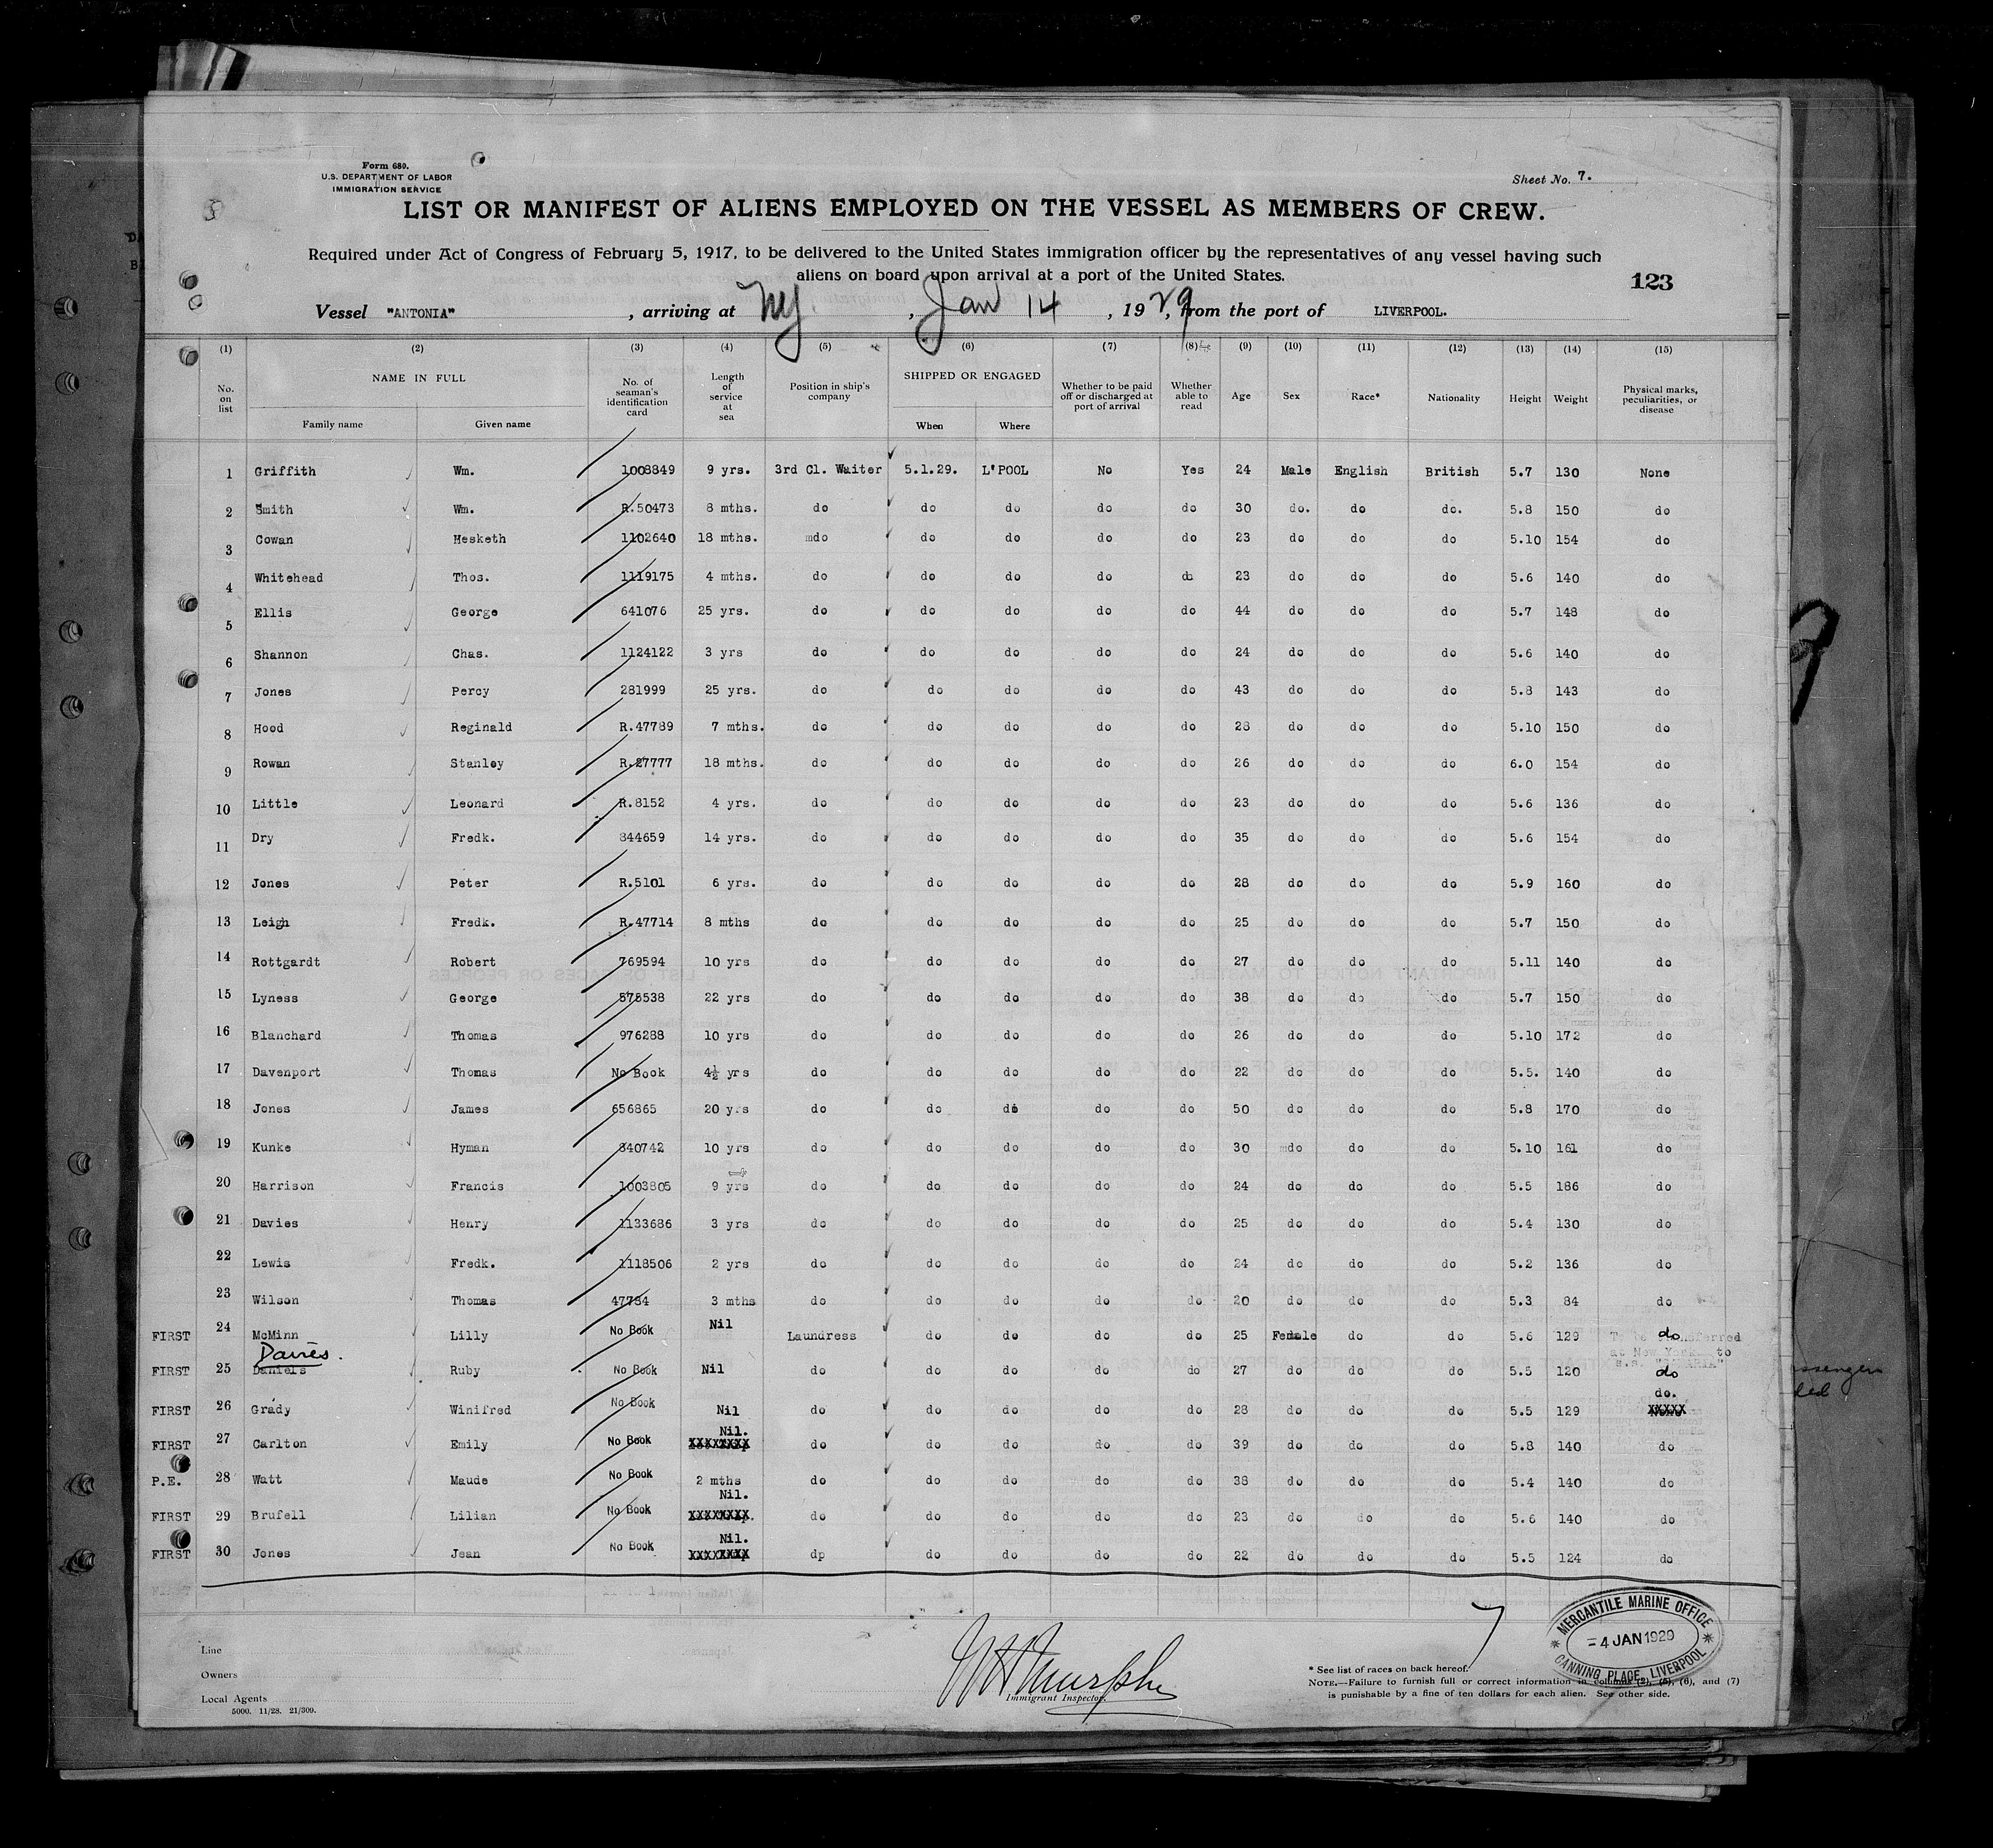 Form 680.
U.S. DEPARTMENT OF LABOR
IMMIGRATION SERVICE
Sheet No. 7.
LIST OR MANIFEST OF ALIENS EMPLOYED ON THE VESSEL AS MEMBERS OF CREW.
Required under Act of Congress of February 5, 1917, to be delivered to the United States immigration officer by the representatives of any vessel having such
aliens on board upon arrival at a port of the United States.
123
Vessel "ANTONIA" , arriving at NY. , Jan 14 , 1929, from the port of LIVERPOOL.
(1) (2) (3) (4) (5) (6) (7) (8) (9) (10) (11) (12) (13) (14) (15)
No. on list NAME IN FULL Family name Given name No. of seaman's identification card Length of service at sea Position in ship's company SHIPPED OR ENGAGED When Where Whether to be paid off or discharged at port of arrival Whether able to read Age Sex Race* Nationality Height Weight Physical marks, peculiarities, or disease
1 Griffith Wm. 1008849 9 yrs. 3rd Cl. Waiter 5.1.29. L'POOL No Yes 24 Male English British 5.7 130 None
2 Smith Wm. R.50473 8 mths. do do do do do 30 do. do do. 5.8 150 do
3 Cowan Hesketh 1102640 18 mths. do do do do do 23 do do do 5.10 154 do
4 Whitehead Thos. 1119175 4 mths. do do do do do 23 do do do 5.6 140 do
5 Ellis George 641076 25 yrs. do do do do do 44 do do do 5.7 148 do
6 Shannon Chas. 1124122 3 yrs do do do do do 24 do do do 5.6 140 do
7 Jones Percy 281999 25 yrs. do do do do do 43 do do do 5.8 143 do
8 Hood Reginald R.47789 7 mths. do do do do do 28 do do do 5.10 150 do
9 Rowan Stanley R.27777 18 mths. do do do do do 26 do do do 6.0 154 do
10 Little Leonard R.8152 4 yrs. do do do do do 23 do do do 5.6 136 do
11 Dry Fredk. 844659 14 yrs. do do do do do 35 do do do 5.6 154 do
12 Jones Peter R.5101 6 yrs. do do do do do 28 do do do 5.9 160 do
13 Leigh Fredk. R.47714 8 mths do do do do do 25 do do do 5.7 150 do
14 Rottgardt Robert 769594 10 yrs do do do do do 27 do do do 5.11 140 do
15 Lyness George 575538 22 yrs do do do do do 38 do do do 5.7 150 do
16 Blanchard Thomas 976288 10 yrs do do do do do 26 do do do 5.10 172 do
17 Davenport Thomas No Book 4½ yrs do do do do do 22 do do do 5.5. 140 do
18 Jones James 656865 20 yrs do do do do do 50 do do do 5.8 170 do
19 Kunke Hyman 840742 10 yrs do do do do do 30 do do do 5.10 161 do
20 Harrison Francis 1003805 9 yrs do do do do do 24 do do do 5.5 186 do
21 Davies Henry 1133686 3 yrs do do do do do 25 do do do 5.4 130 do
22 Lewis Fredk. 1118506 2 yrs do do do do do 24 do do do 5.2 136 do
23 Wilson Thomas 47784 3 mths do do do do do 20 do do do 5.3 84 do
FIRST 24 McMinn Lilly No Book Nil Laundress do do do do 25 Female do do 5.6 129 do
Davies.
FIRST 25 Daniels Ruby No Book Nil do do do do do 27 do do do 5.5 120 do
FIRST 26 Grady Winifred No Book Nil do do do do do 28 do do do 5.5 129 do.
FIRST 27 Carlton Emily No Book Nil. do do do do do 39 do do do 5.8 140 do
P.E. 28 Watt Maude No Book 2 mths do do do do do 38 do do do 5.4 140 do
FIRST 29 Brufell Lilian No Book Nil. do do do do do 23 do do do 5.6 140 do
FIRST 30 Jones Jean No Book Nil. dp do do do do 22 do do do 5.5 124 do
Line
Owners
Local Agents
5000. 11/28. 21/309.
Immigrant Inspector.
* See list of races on back hereof.
NOTE.—Failure to furnish full or correct information in columns (2), (5), (6), and (7)
is punishable by a fine of ten dollars for each alien. See other side.
MERCANTILE MARINE OFFICE
-4 JAN 1929
CANNING PLACE, LIVERPOOL